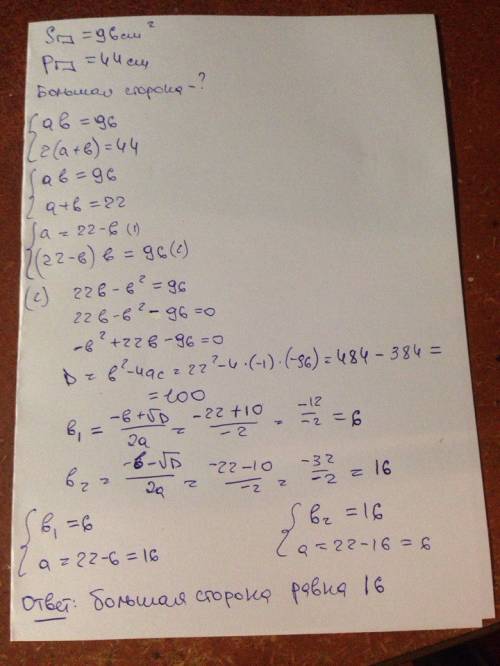 S▭ = 96 см²
P▭ = 44 см
Большая сторона - ?
{ ab = 96
2(a+b) = 44
{ ab = 96
a+b = 22
{ a = 22-b (1)
(22-b) b = 96 (2)
(2) 22b - b² = 96
22b - b² - 96 = 0
-b² + 22b - 96 = 0
D = b² - 4ac = 22² - 4·(-1)·(-96) = 484 - 384 =
= 100
b₁ = (-b+√D)/2a = (-22+10)/-2 = -12/-2 = 6
b₂ = (-b-√D)/2a = (-22-10)/-2 = -32/-2 = 16
{ b₁ = 6 { b₂ = 16
a = 22-6 = 16 a = 22-16 = 6
Ответ: большая сторона равна 16